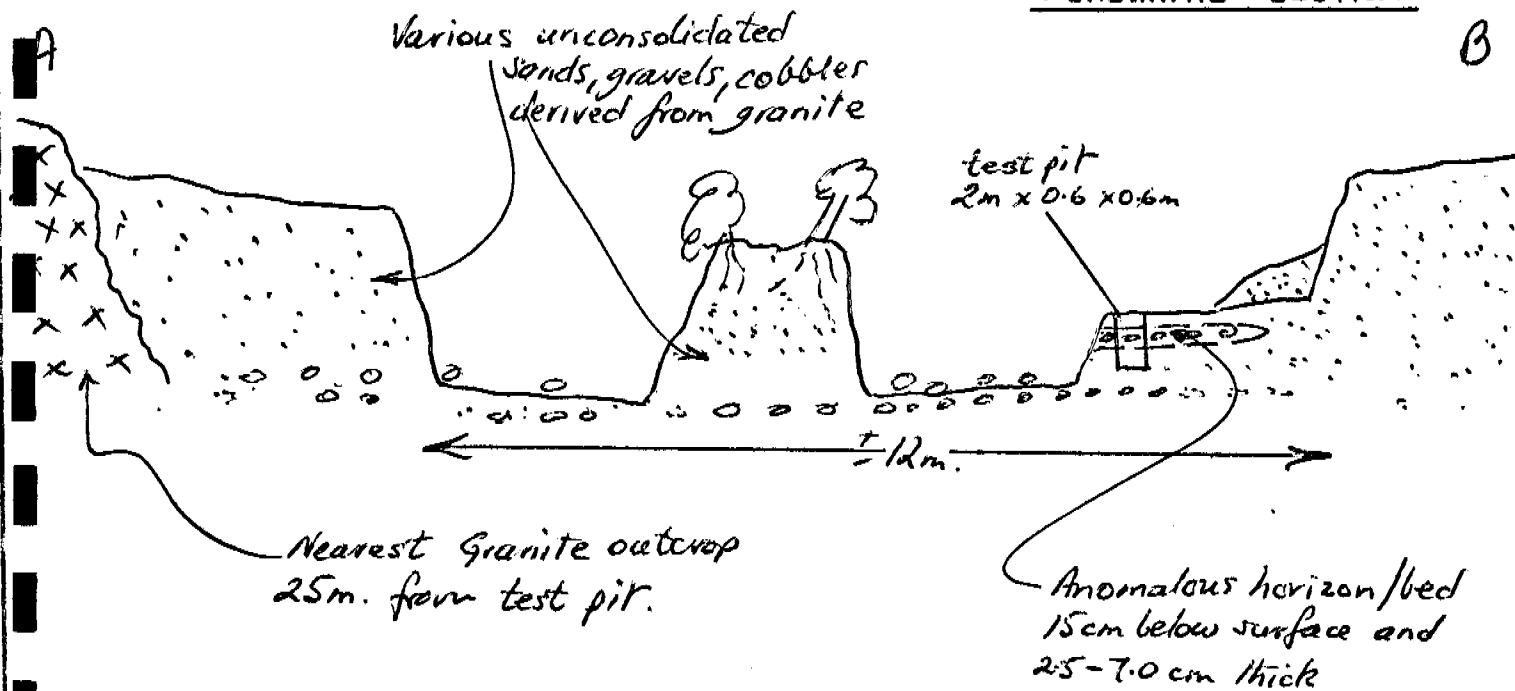 A
B
Various unconsolidated
sands, gravels, cobbles
derived from granite
test pit
2m x 0.6 x 0.6m
± 12m.
Nearest Granite outcrop
25m. from test pit.
Anomalous horizon/bed
15cm below surface and
2.5-7.0 cm thick